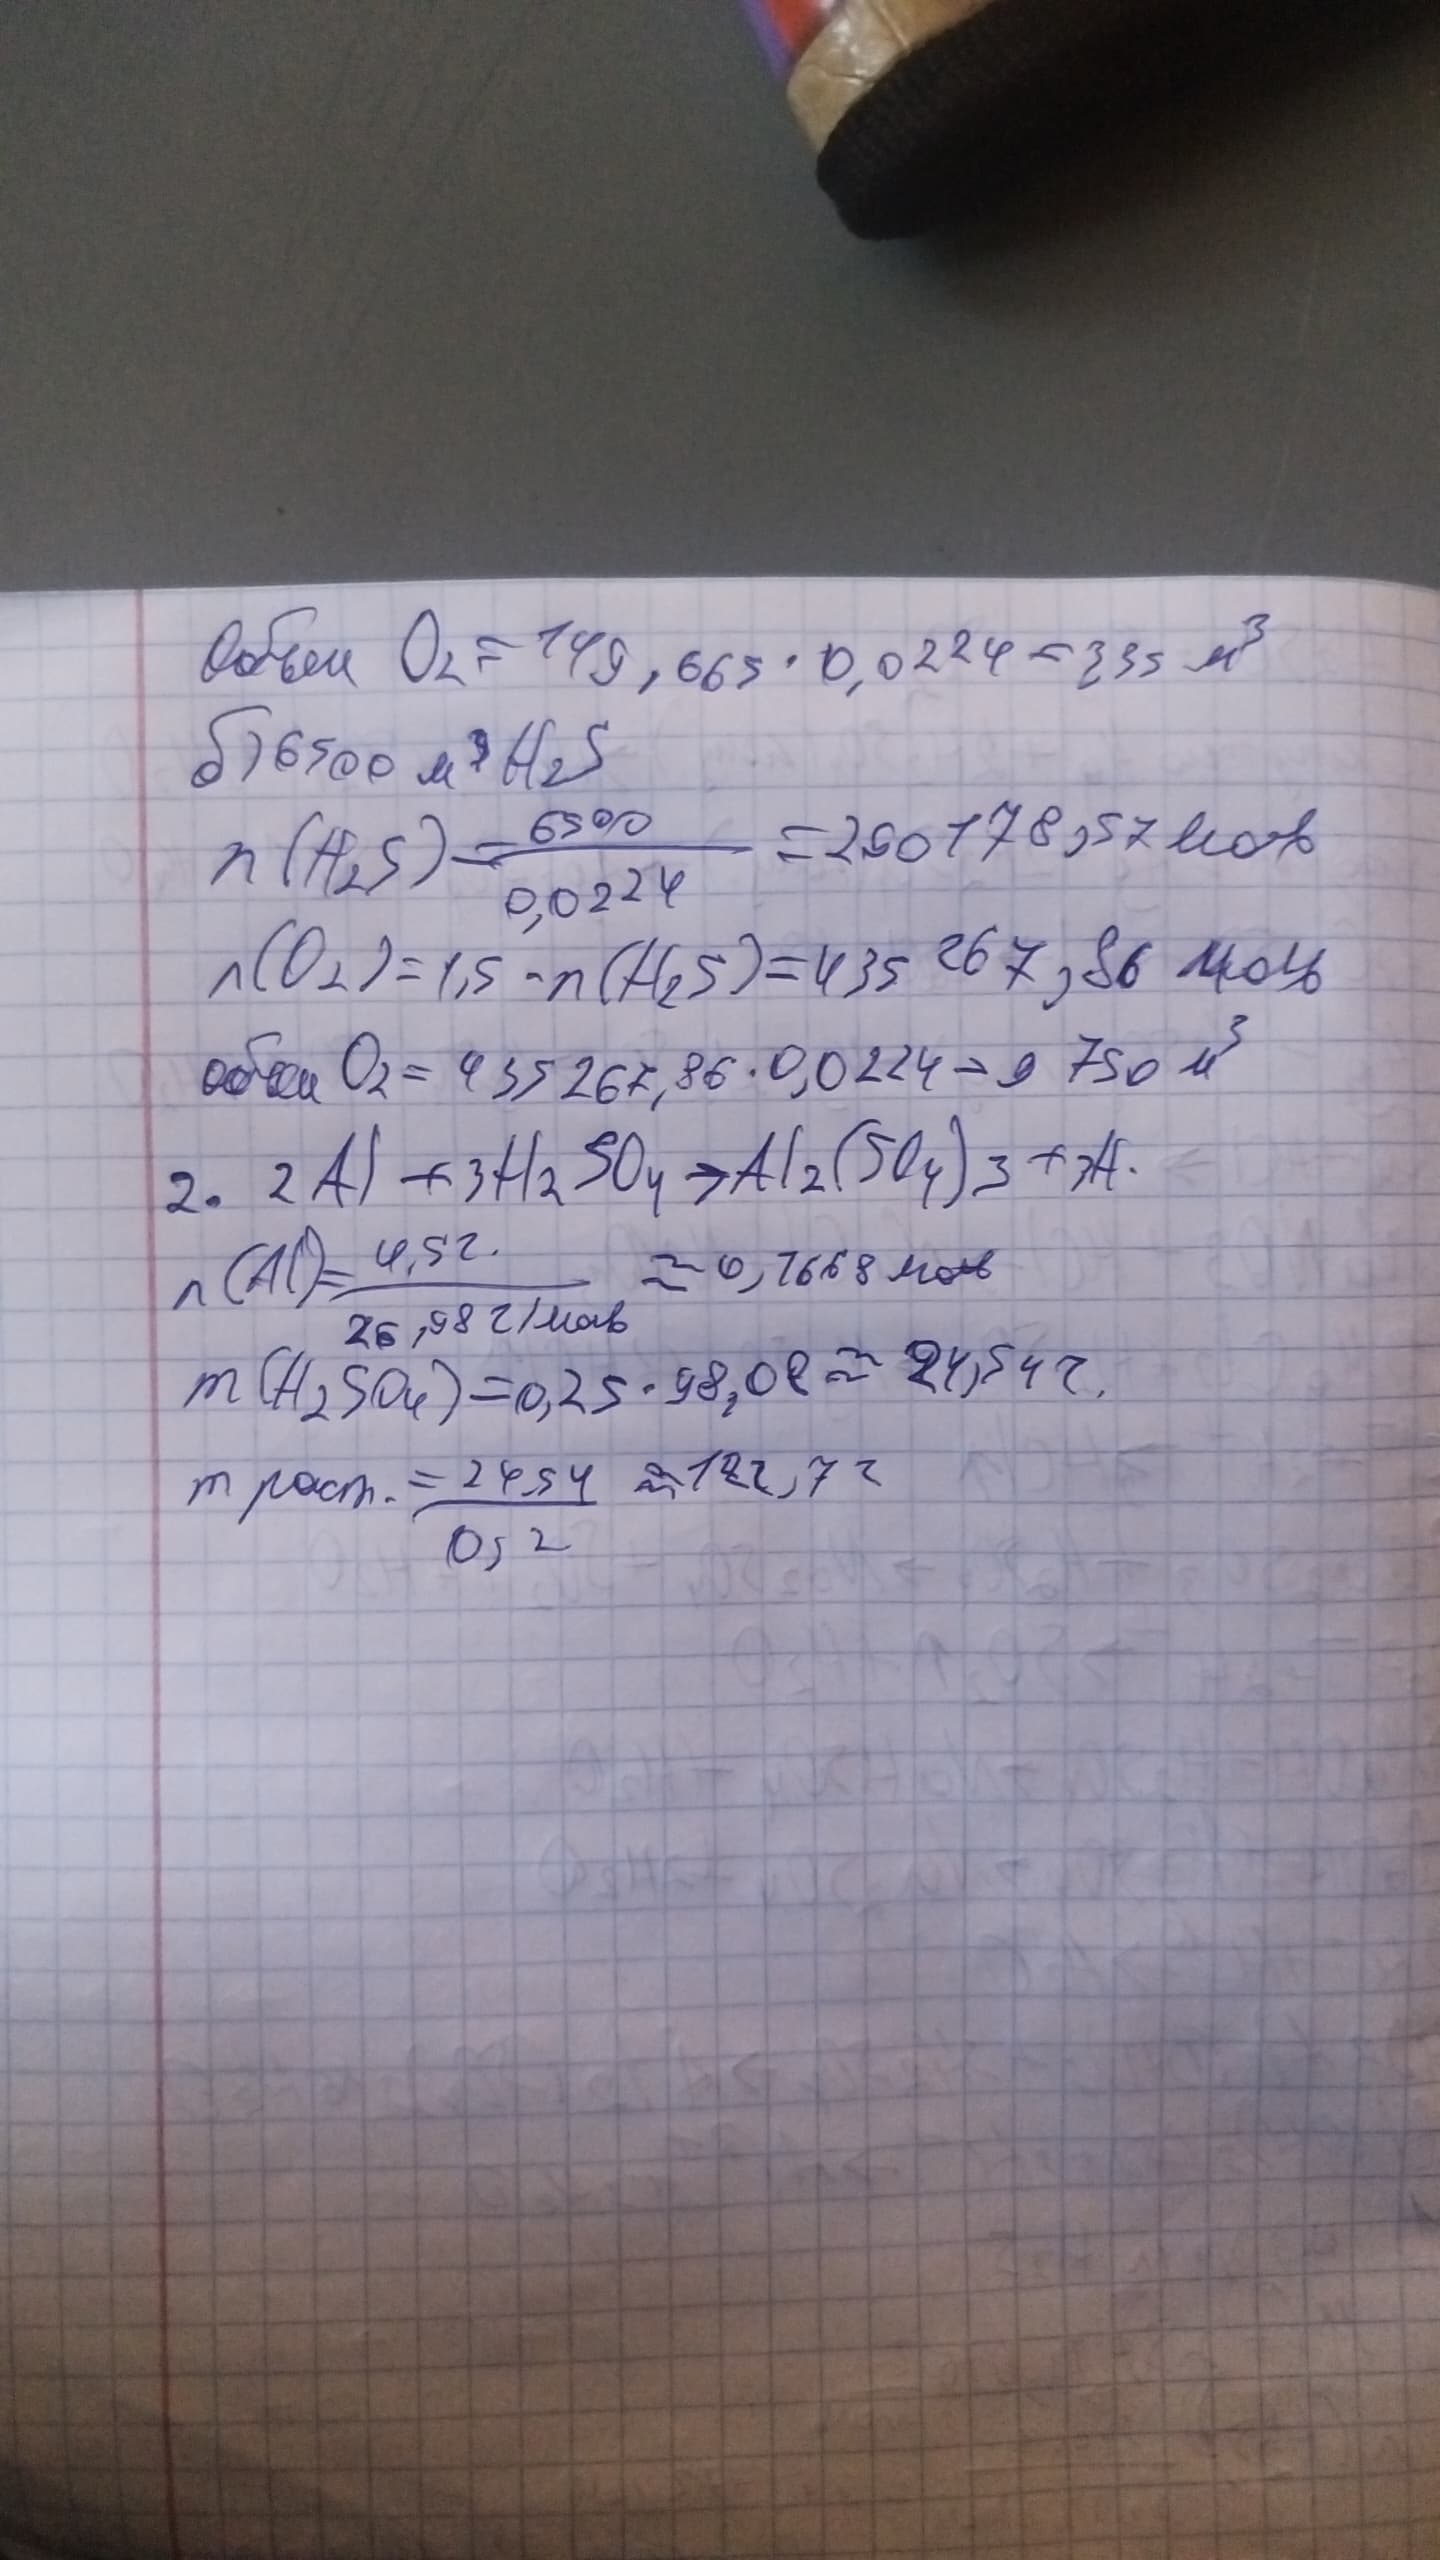 Объём O₂ = 149,665 · 0,0224 = 335 м³
б) 6500 м³ H₂S
n(H₂S) = 6500 / 0,0224 = 290178,57 моль
n(O₂) = 1,5 · n(H₂S) = 435 267,86 моль
объём O₂ = 435267,86 · 0,0224 = 9 750 м³
2. 2Al + 3H₂SO₄ → Al₂(SO₄)3 + 3H.
n(Al) = 4,5г. / 26,98 г/моль ≈ 0,1668 моль
m(H₂SO₄) = 0,25 · 98,08 ≈ 24,54 г.
m раст. = 24,54 / 0,2 ≈ 122,7 г